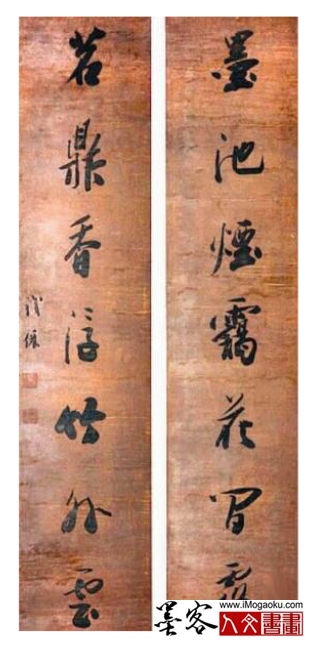 墨池煙靄花間露
茗鼎香浮竹外雲
墨客
www.iMogaoku.com
人文書畫